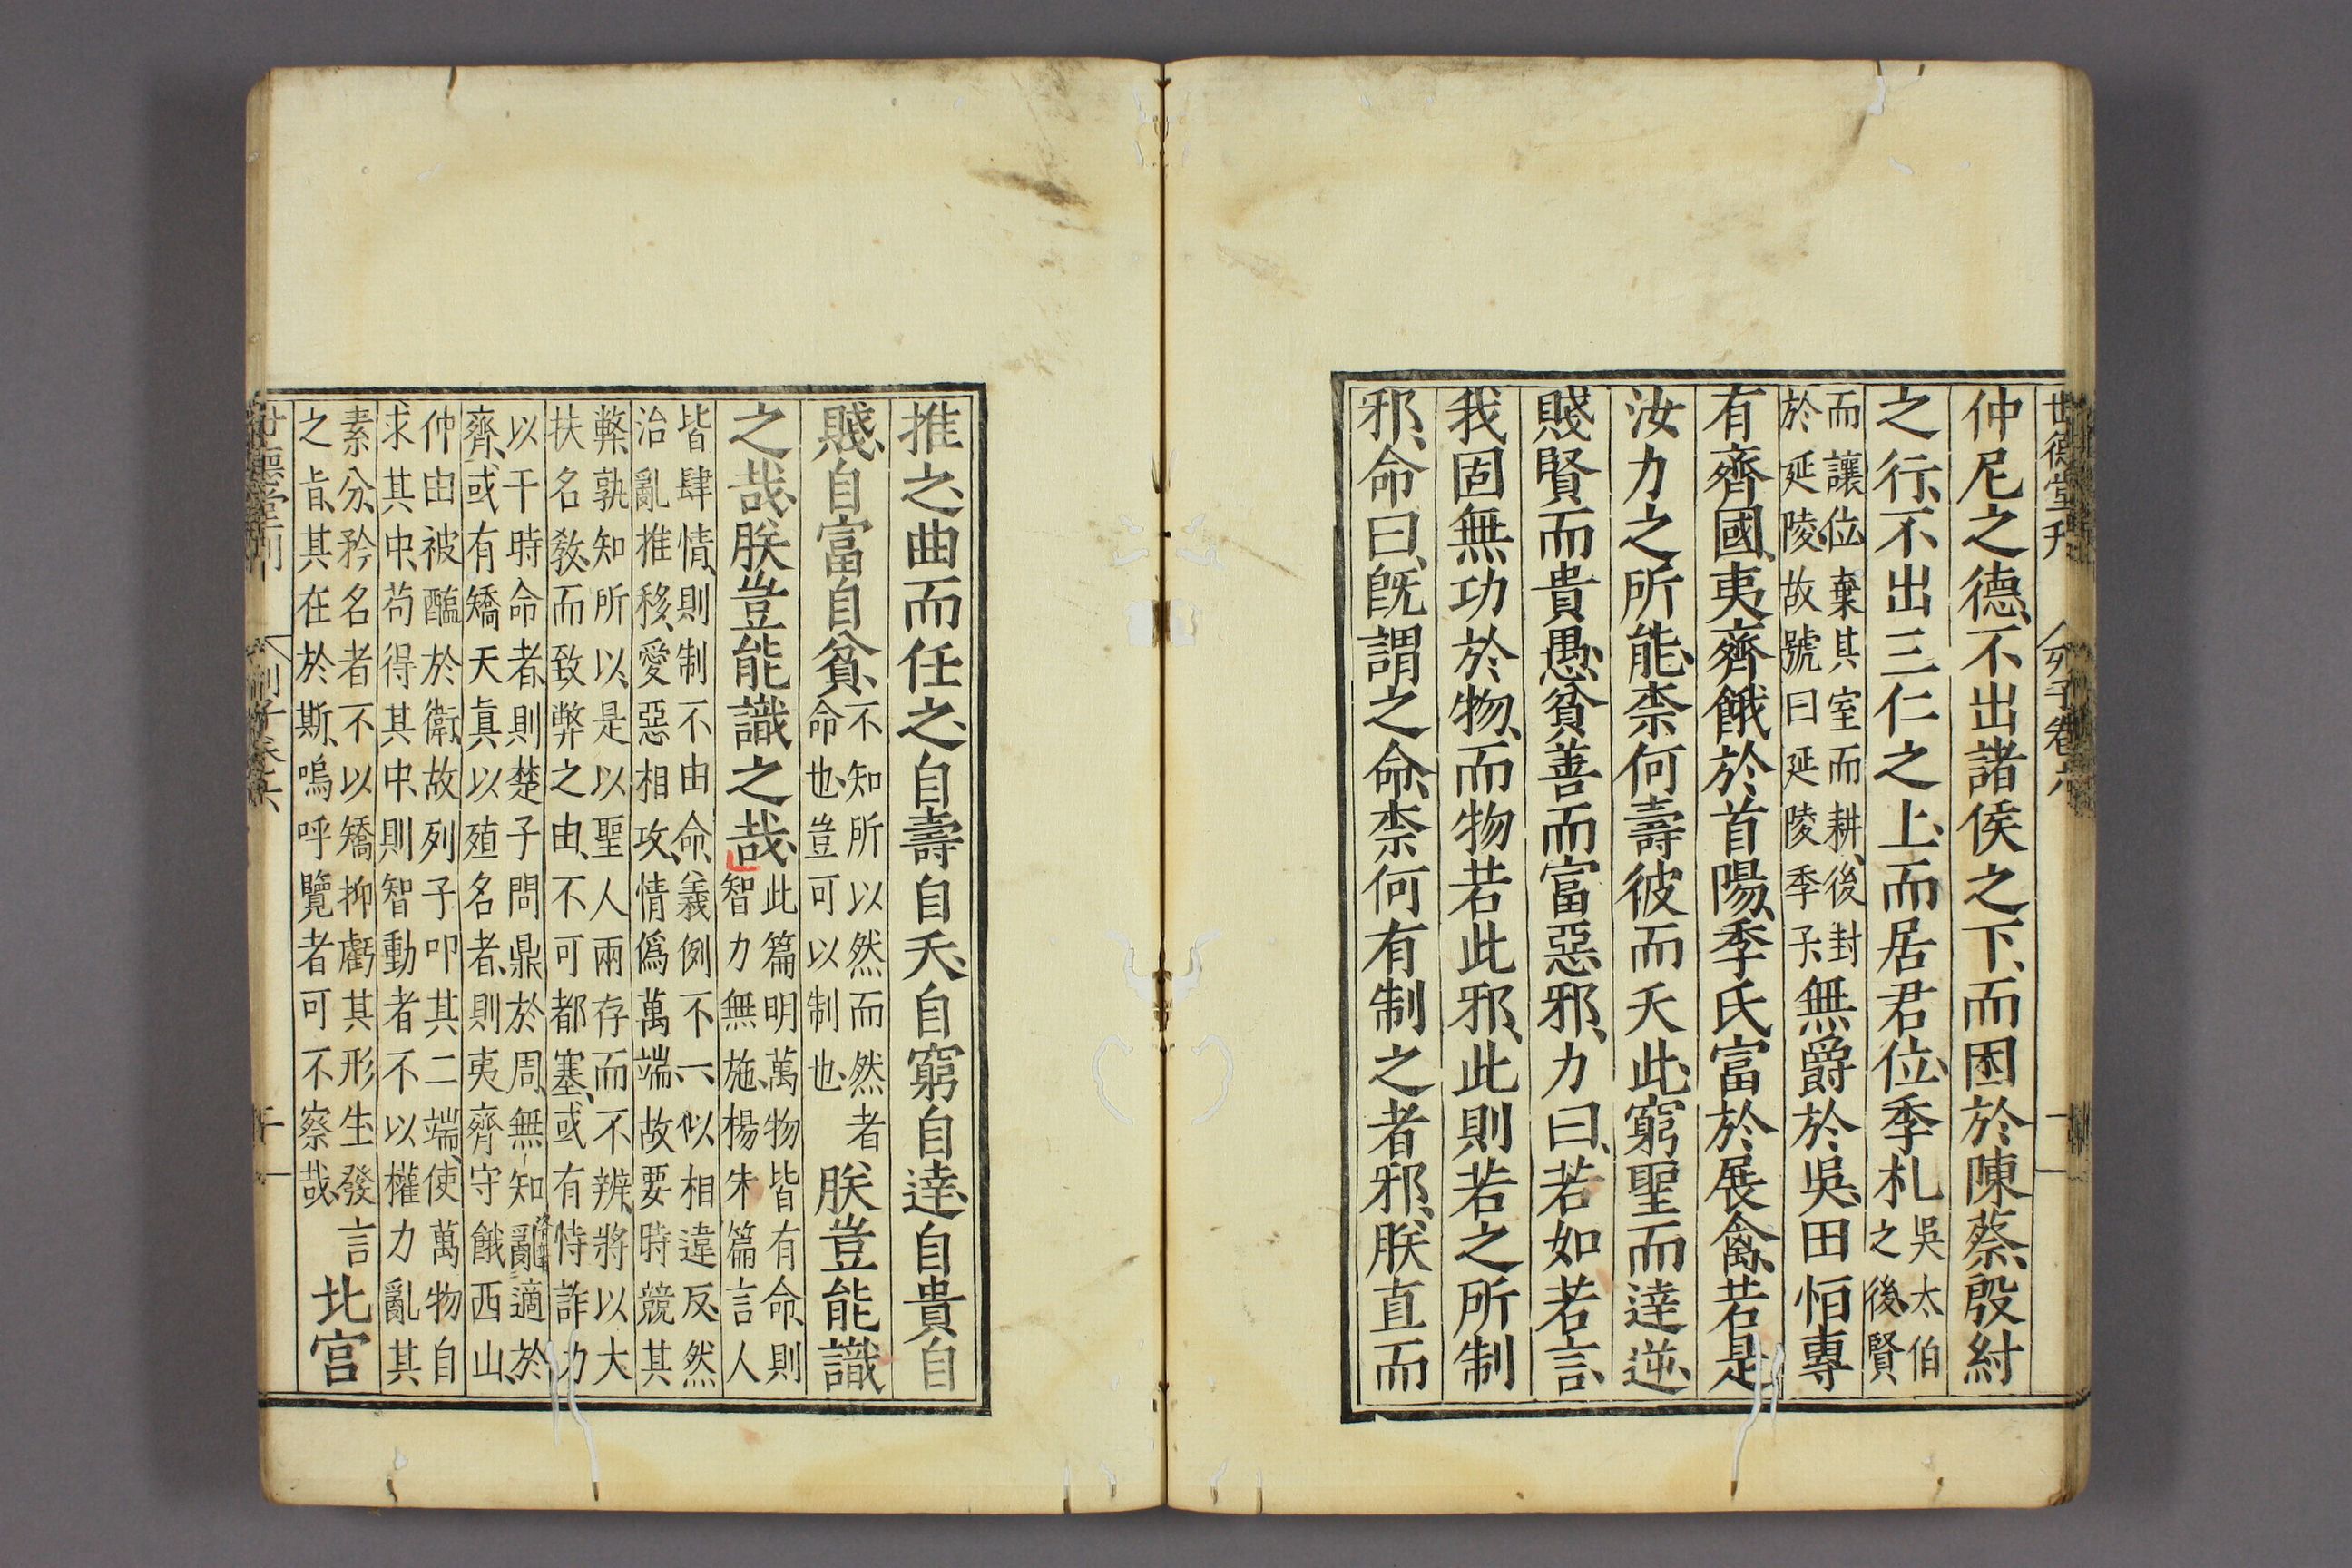 世德堂刊 列子卷六
仲尼之德、不出諸侯之下、而困於陳蔡、殷紂
之行、不出三仁之上、而居君位、季札吳太伯之後、賢
而讓位、棄其室而耕、後封於延陵、故號曰延陵季子、無爵於吳、田恒專
有齊國、夷齊餓於首陽、季氏富於展禽、若是
汝力之所能、柰何壽彼而夭此、窮聖而達逆、
賤賢而貴愚、貧善而富惡邪、力曰、若如若言、
我固無功於物、而物若此邪、此則若之所制
邪、命曰、旣謂之命、柰何有制之者邪、朕直而
推之、曲而任之、自壽自夭、自窮自達、自貴自
賤、自富自貧、不知所以然而然者命也、豈可以制也、朕豈能識
之哉、朕豈能識之哉、此篇明萬物皆有命、則智力無施、楊朱篇言人
皆肆情、則制不由命、義例不一、似相違反、然治亂推移、愛惡相攻、情僞萬端、故要時競其
弊、孰知所以、是以聖人兩存而不辨、將以大扶名敎、而致弊之由、不可都塞、或有恃詐力
以干時命者、則楚子問鼎於周、無知亂適於齊、或有矯天眞以殖名者、則夷齊守餓西山、
仲由被醢於衛、故列子叩其二端、使萬物自求其中、苟得其中、則智動者不以權力亂其
素分、矜名者不以矯抑虧其形生、發言之旨、其在於斯、嗚呼覽者可不察哉、北宮
世德堂刊 列子卷六